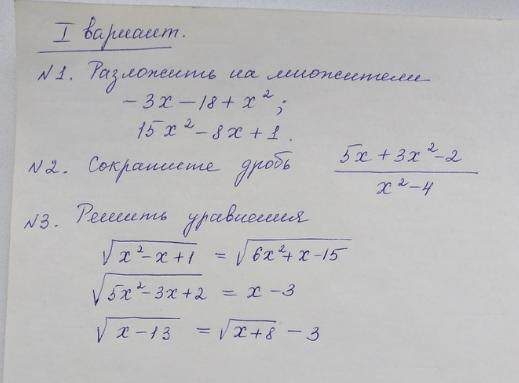 I вариант.
N1. Разложить на множители
-3x-18+x²;
15x²-8x+1.
N2. Сократите дробь (5x+3x²-2)/(x²-4)
N3. Решить уравнения
√(x²-x+1) = √(6x²+x-15)
√(5x²-3x+2) = x-3
√(x-13) = √(x+8) - 3